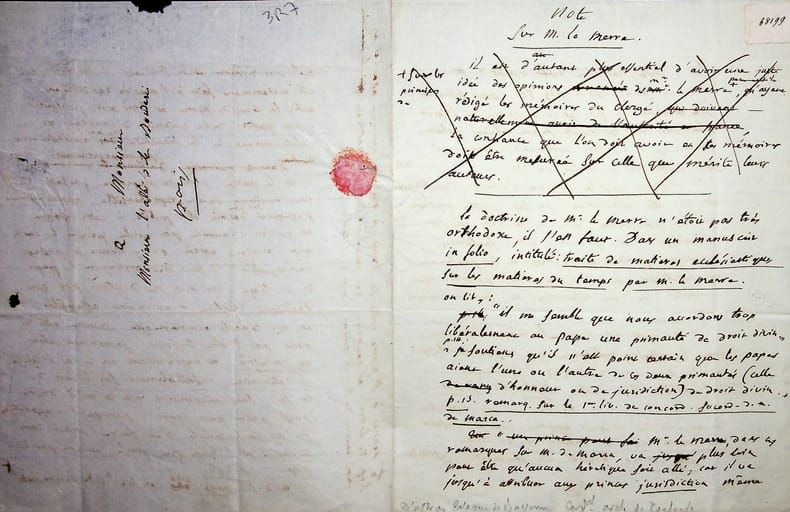 3R7
68199
a
Monsieur
Monsieur l'abbé
paris
Note
Sur M. le Merre.
il est d'autant plus essentiel d'avoir une juste
+ Sur les
principes
idée des opinions de m. le merre qu'ayant
rédigé les mémoires du clergé
naturellement
la confiance que l'on doit avoir en les mémoires
doit être mesurée sur celle que mérite leurs
auteurs.
la doctrine de Mr. le merre n'étoit pas très
orthodoxe, il s'en faut. Dans un manuscrit
in folio, intitulé: traité de matieres ecclésiastiques
sur les matieres du temps par m. le merre.
on lit,:
"il me semble que nous accordons trop
libéralement au Pape une primauté de droit divin
je soutiens qu'il n'est point certain que les papes
aient l'une ou l'autre de ces deux primautés (celle
d'honneur ou de jurisdiction) de droit divin.
p. 15. remarq. sur le 1er liv. de concord. sacerd. d. m.
de marca.
M. le merre, dans ces
remarques sur M. de Marca, va plus loin
peut être qu'aucun hérétique soit allé, car il va
jusqu'à attribuer aux princes jurisdiction même